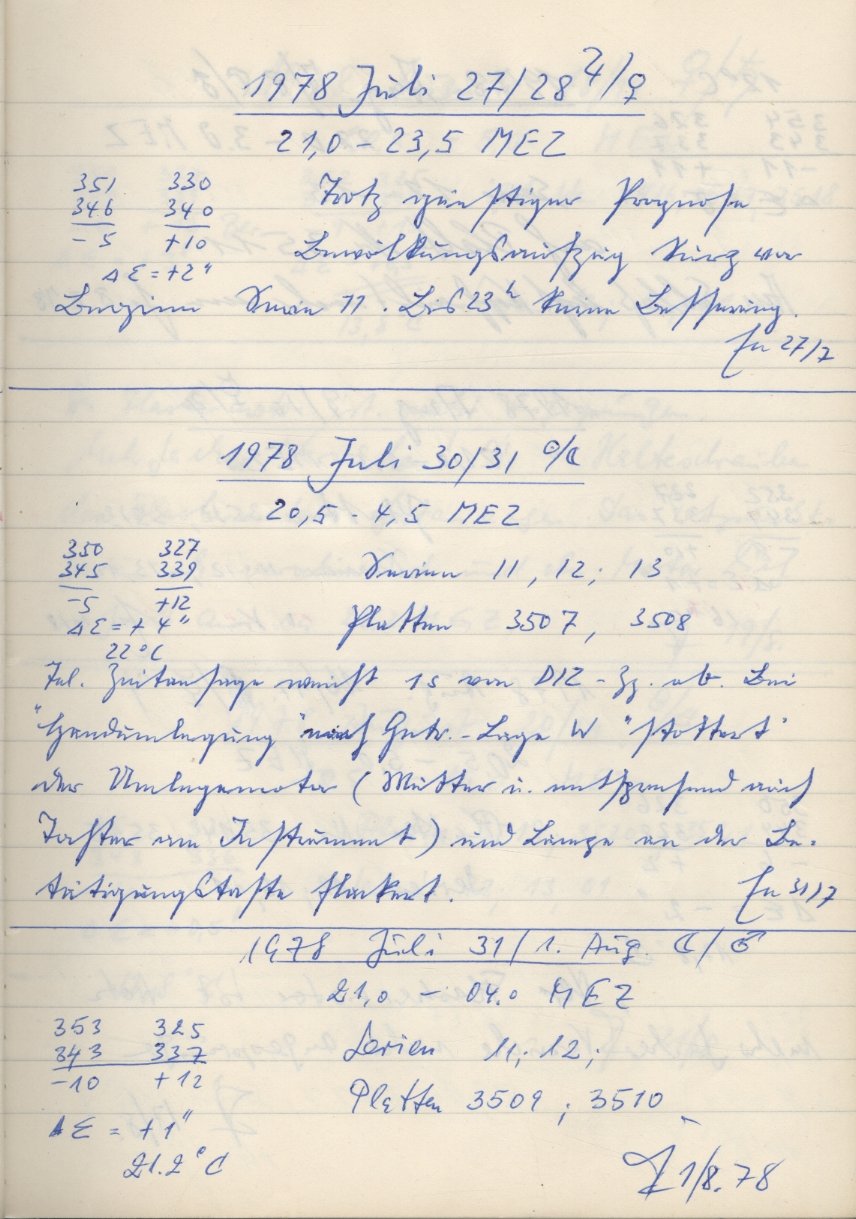 1978 Juli 27/28 ♃/♀
21,0 - 23,5 MEZ
351 330
346 340
-5 +10
Δ Σ = +2"
Trotz günstiger Prognose
Bewölkungsaufzug kurz vor
Beginn Serie 11. Bis 23h keine Besserung.
27/7
1978 Juli 30/31 ☉/☾
20,5 - 4,5 MEZ
350 327
345 339
-5 +12
Δ Σ = + 4"
22°C
Serien 11, 12, 13
Platten 3507, 3508
Tel. Zeitansage weicht 1s von DIZ - ab. Bei
"Handumlegung" nach Lage W "stottert"
der Umlegemotor (Mutter u. entsprechend auch
Tochter am Instrument) und Lampe an der Be-
tätigungstaste flackert.
31/7
1978 Juli 31/1. Aug. ☾/♂
21,0 - 04.0 MEZ
353 325
343 337
-10 +12
Δ Σ = +1"
21.2°C
Serien 11; 12;
Platten 3509; 3510
1/8.78